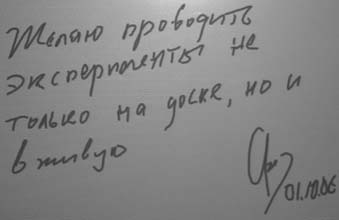 Желаю проводить
эксперименты не
только на доске, но и
вживую
01.10.06